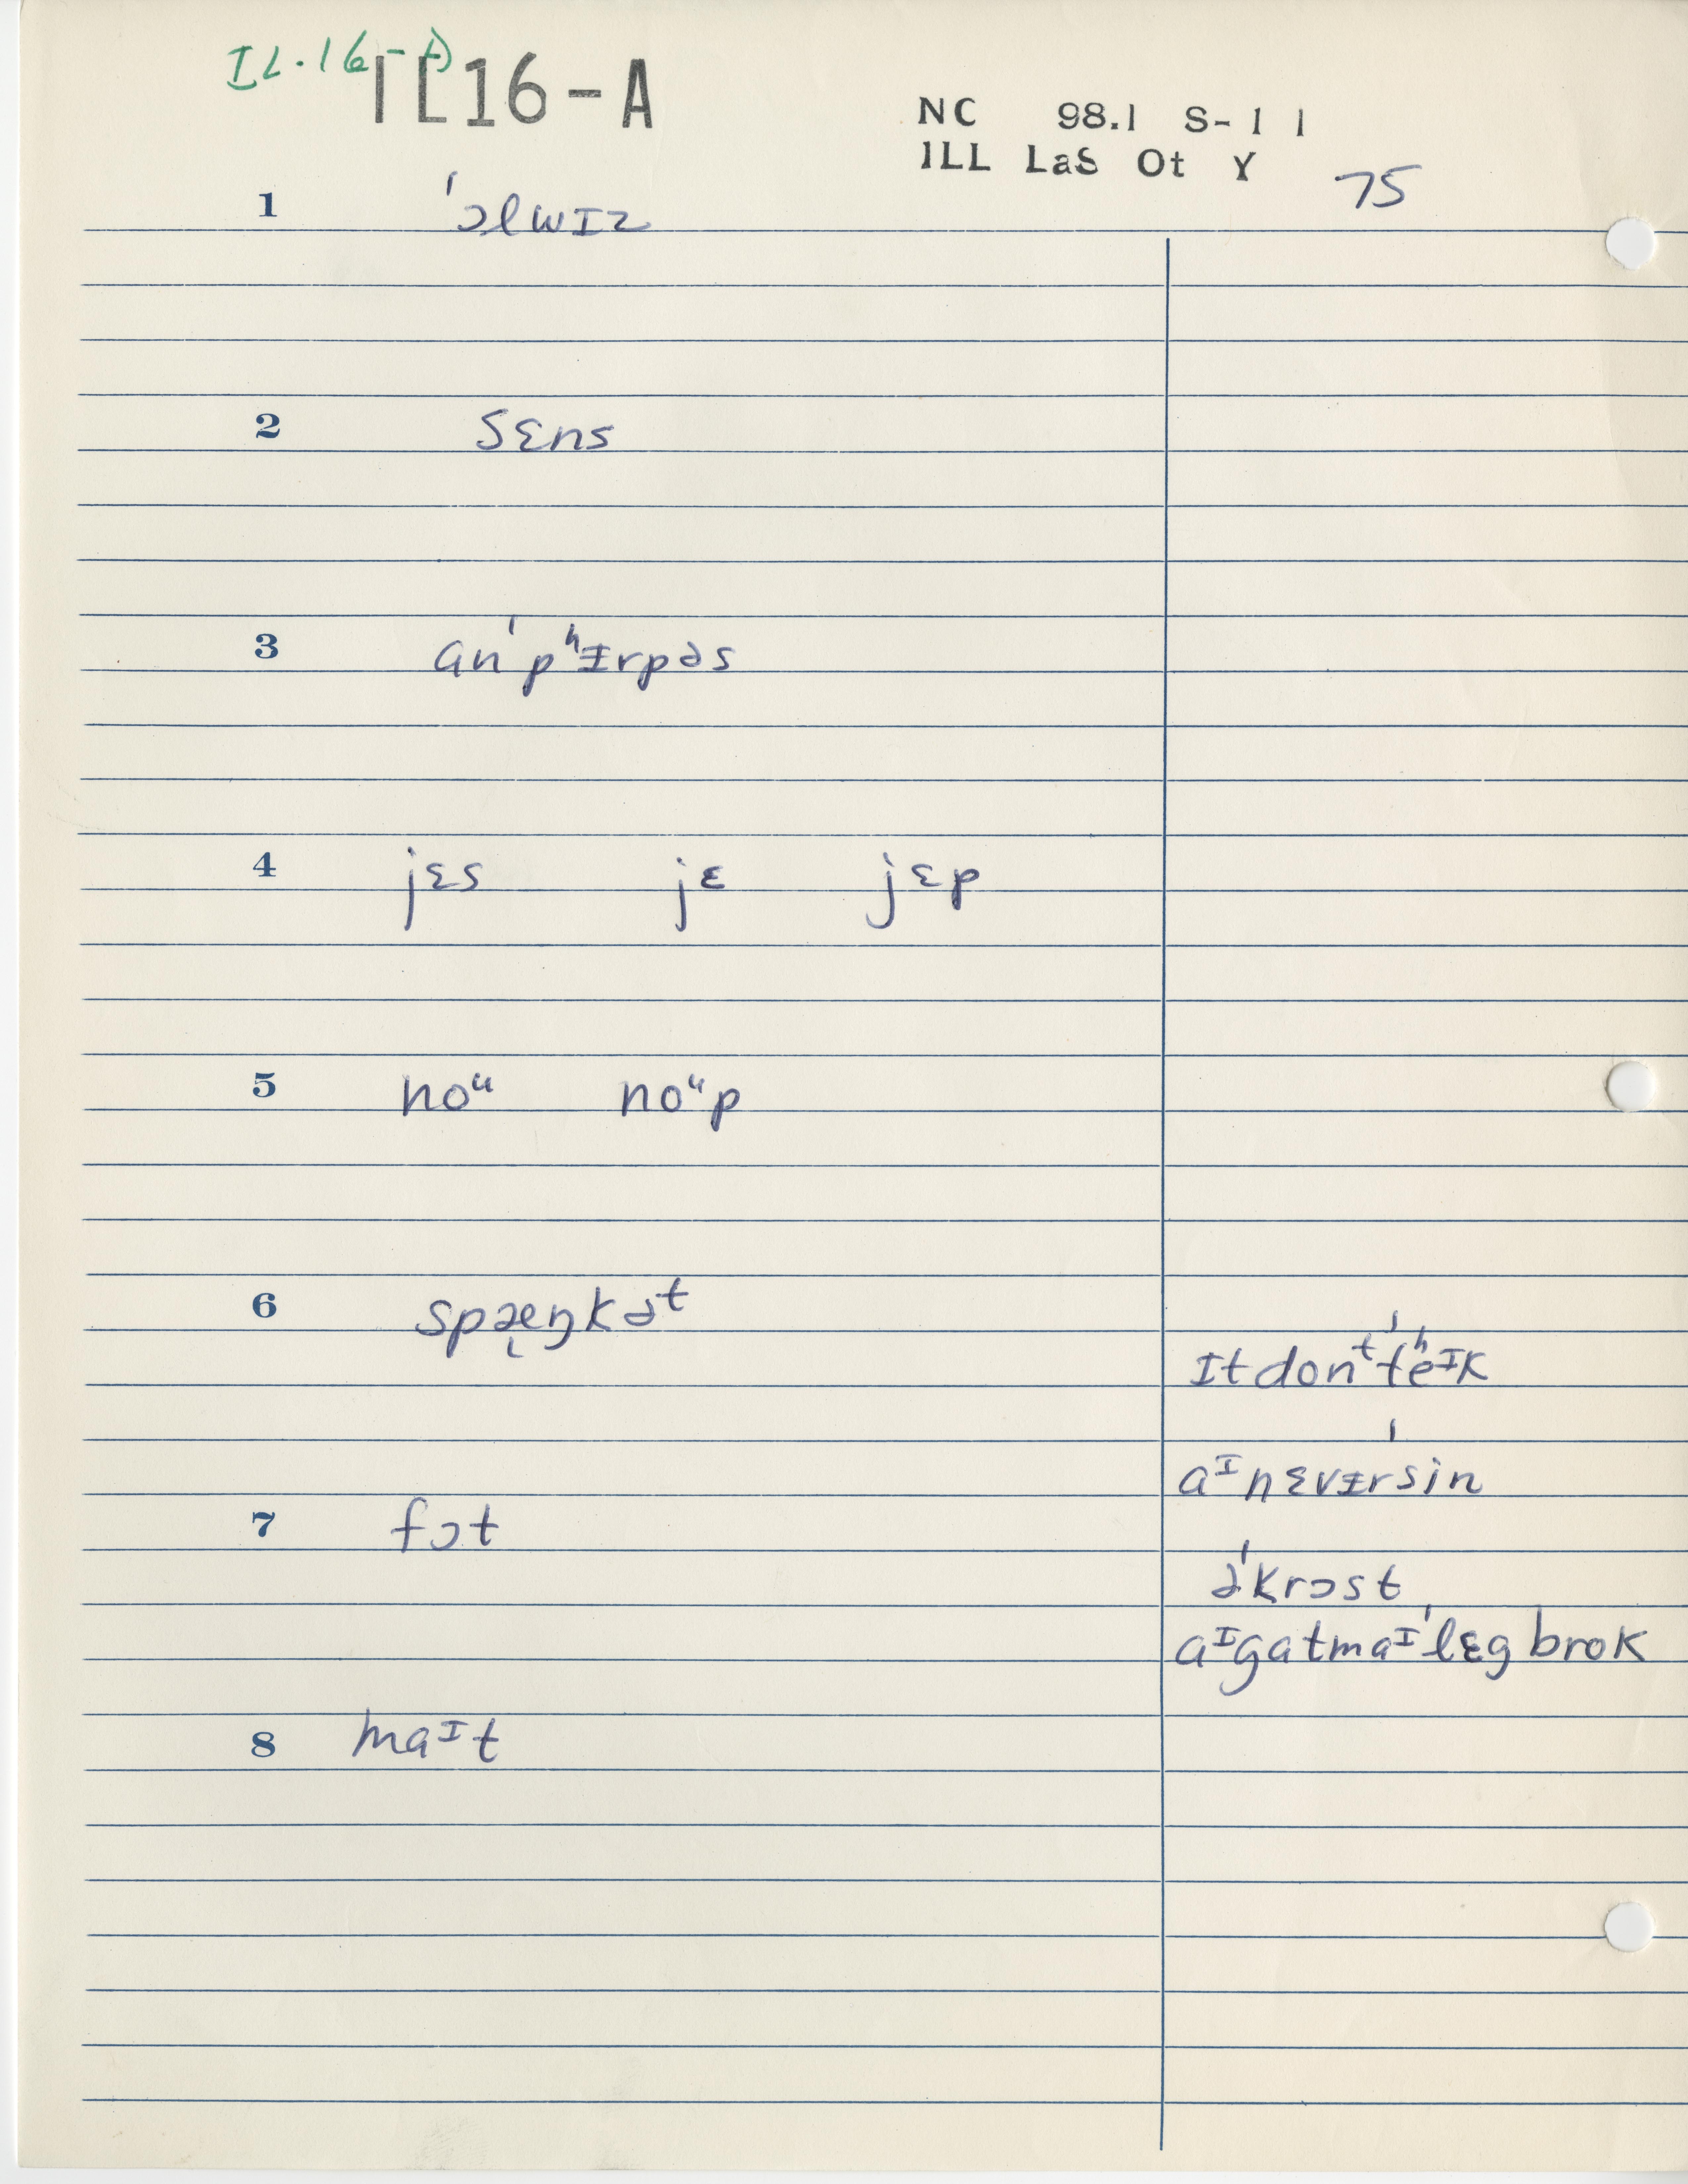 IL.16-A
IL16-A
NC 98.1 S-11
ILL LaS Ot Y
75
1 ˈɔlwɪz
2 sɛns
3 anˈpʰɪ̵rpəs
4 jɛs jɛ jɛp
5 noᵘ noᵘp
6 spæ̨ŋkəᵗ
ɪtdonᵗˈtʰeᶦk
aᶦnɛvɪ̵rˈsin
7 fɔt
əˈkrɔst
aᶦgatmaᶦˈlɛg brok
8 maᶦt